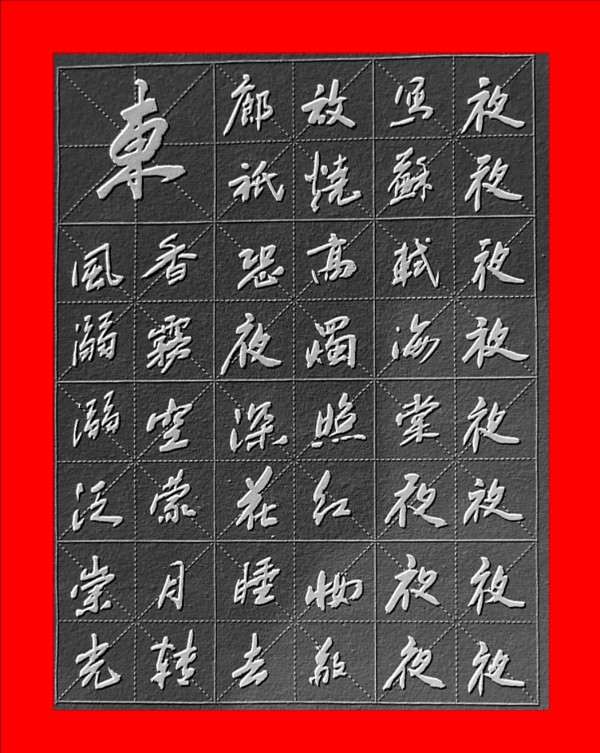 東風溺溺泛崇光
香霧空蒙月转
廊祇恐夜深花睡去
故燒高燭照红妝敬
写蘇軾海棠夜夜夜
夜夜夜夜夜夜夜夜